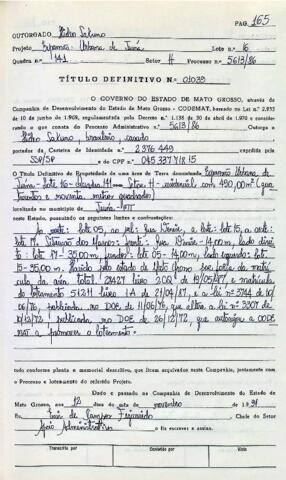 PAG. 165
OUTORGADO Pedro Salino
Projeto Expansão Urbana de Juína Lote nº 16
Quadra n.º 141 Setor H Processo n.º 5613/86
TÍTULO DEFINITIVO N.º 01039
O GOVERNO DO ESTADO DE MATO GROSSO, através da
Companhia de Desenvolvimento do Estado de Mato Grosso - CODEMAT, baseado na Lei n.º 2.933
de 10 de junho de 1969, regulamentada pelo Decreto n.º 1.138 de 30 de abril de 1970 e considerando
o que consta do Processo Administrativo n.º 5613/86 Outorga a
Pedro Salino, brasileiro, casado
portador da Carteira de Identidade n.º 2 376 449 expedida pela
SSP/SP e do CPF n.º 045 337 718 15
o Título Definitivo de Propriedade de uma área de Terra denominada Expansão Urbana de
Juína - lote 16 - quadra 141 - Setor H - residencial com 490,00 m² (qua
trocentos e noventa metros quadrados)
localizado no município de Juína - MT
neste Estado, possuindo os seguintes limites e confrontações:
ao norte: lote 05, ao sul: rua , a leste: lote 15, a oeste:
lote 17. Situação dos Marcos: frente: rua - 14,00m, lado direi
to: lote 17 - 35,00m, fundos: lote 05 - 14,00m, lado esquerdo: lote
15 - 35,00m. pelo estado de Mato Grosso por força da matrí
cula da área total 21427 livro 2CQ de 19/05/87, e matrícula
do loteamento 51211 livro 1A de 21/04/87, e a lei nº 3744 de 10/
06/76, publicada no DOE de 11/06/76, que altera a lei nº 3307 de
18/12/72 publicada no DOE de 26/12/72, que autoriza a CODE
MAT a promover o loteamento.
tudo conforme planta e memorial descritivo, que ficam arquivados nesta Companhia, juntamente com
o Processo e loteamento do referido Projeto.
Dado e passado na Companhia de Desenvolvimento do Estado de
Mato Grosso, aos 12 dias do mês de novembro de 1991
Eu, de Campos Figueiredo Chefe do Setor
Apoio Administrativo o fiz escrever e assino.
Transcrito por Conferido por Visto